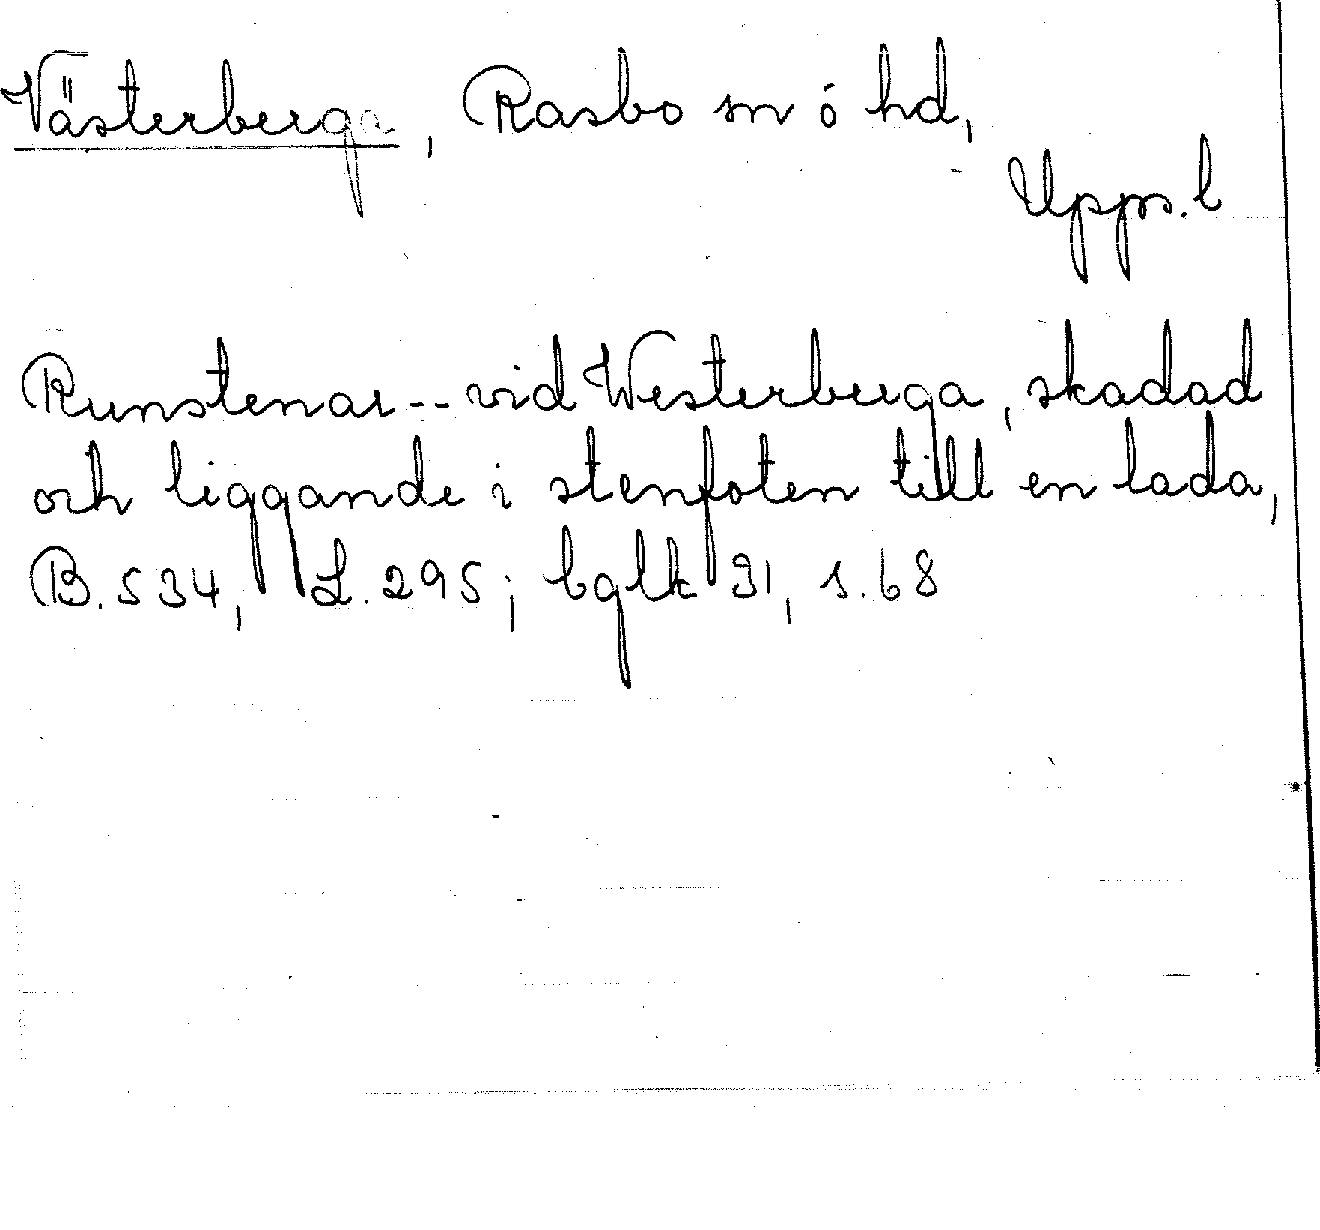 Västerberga, Rasbo sn ó hd,
Upps. l
Runstenar -- vid Westerberga, skadad
och liggande i stenfoten till en lada,
B. 534, L. 295; bglk 31, s. 68